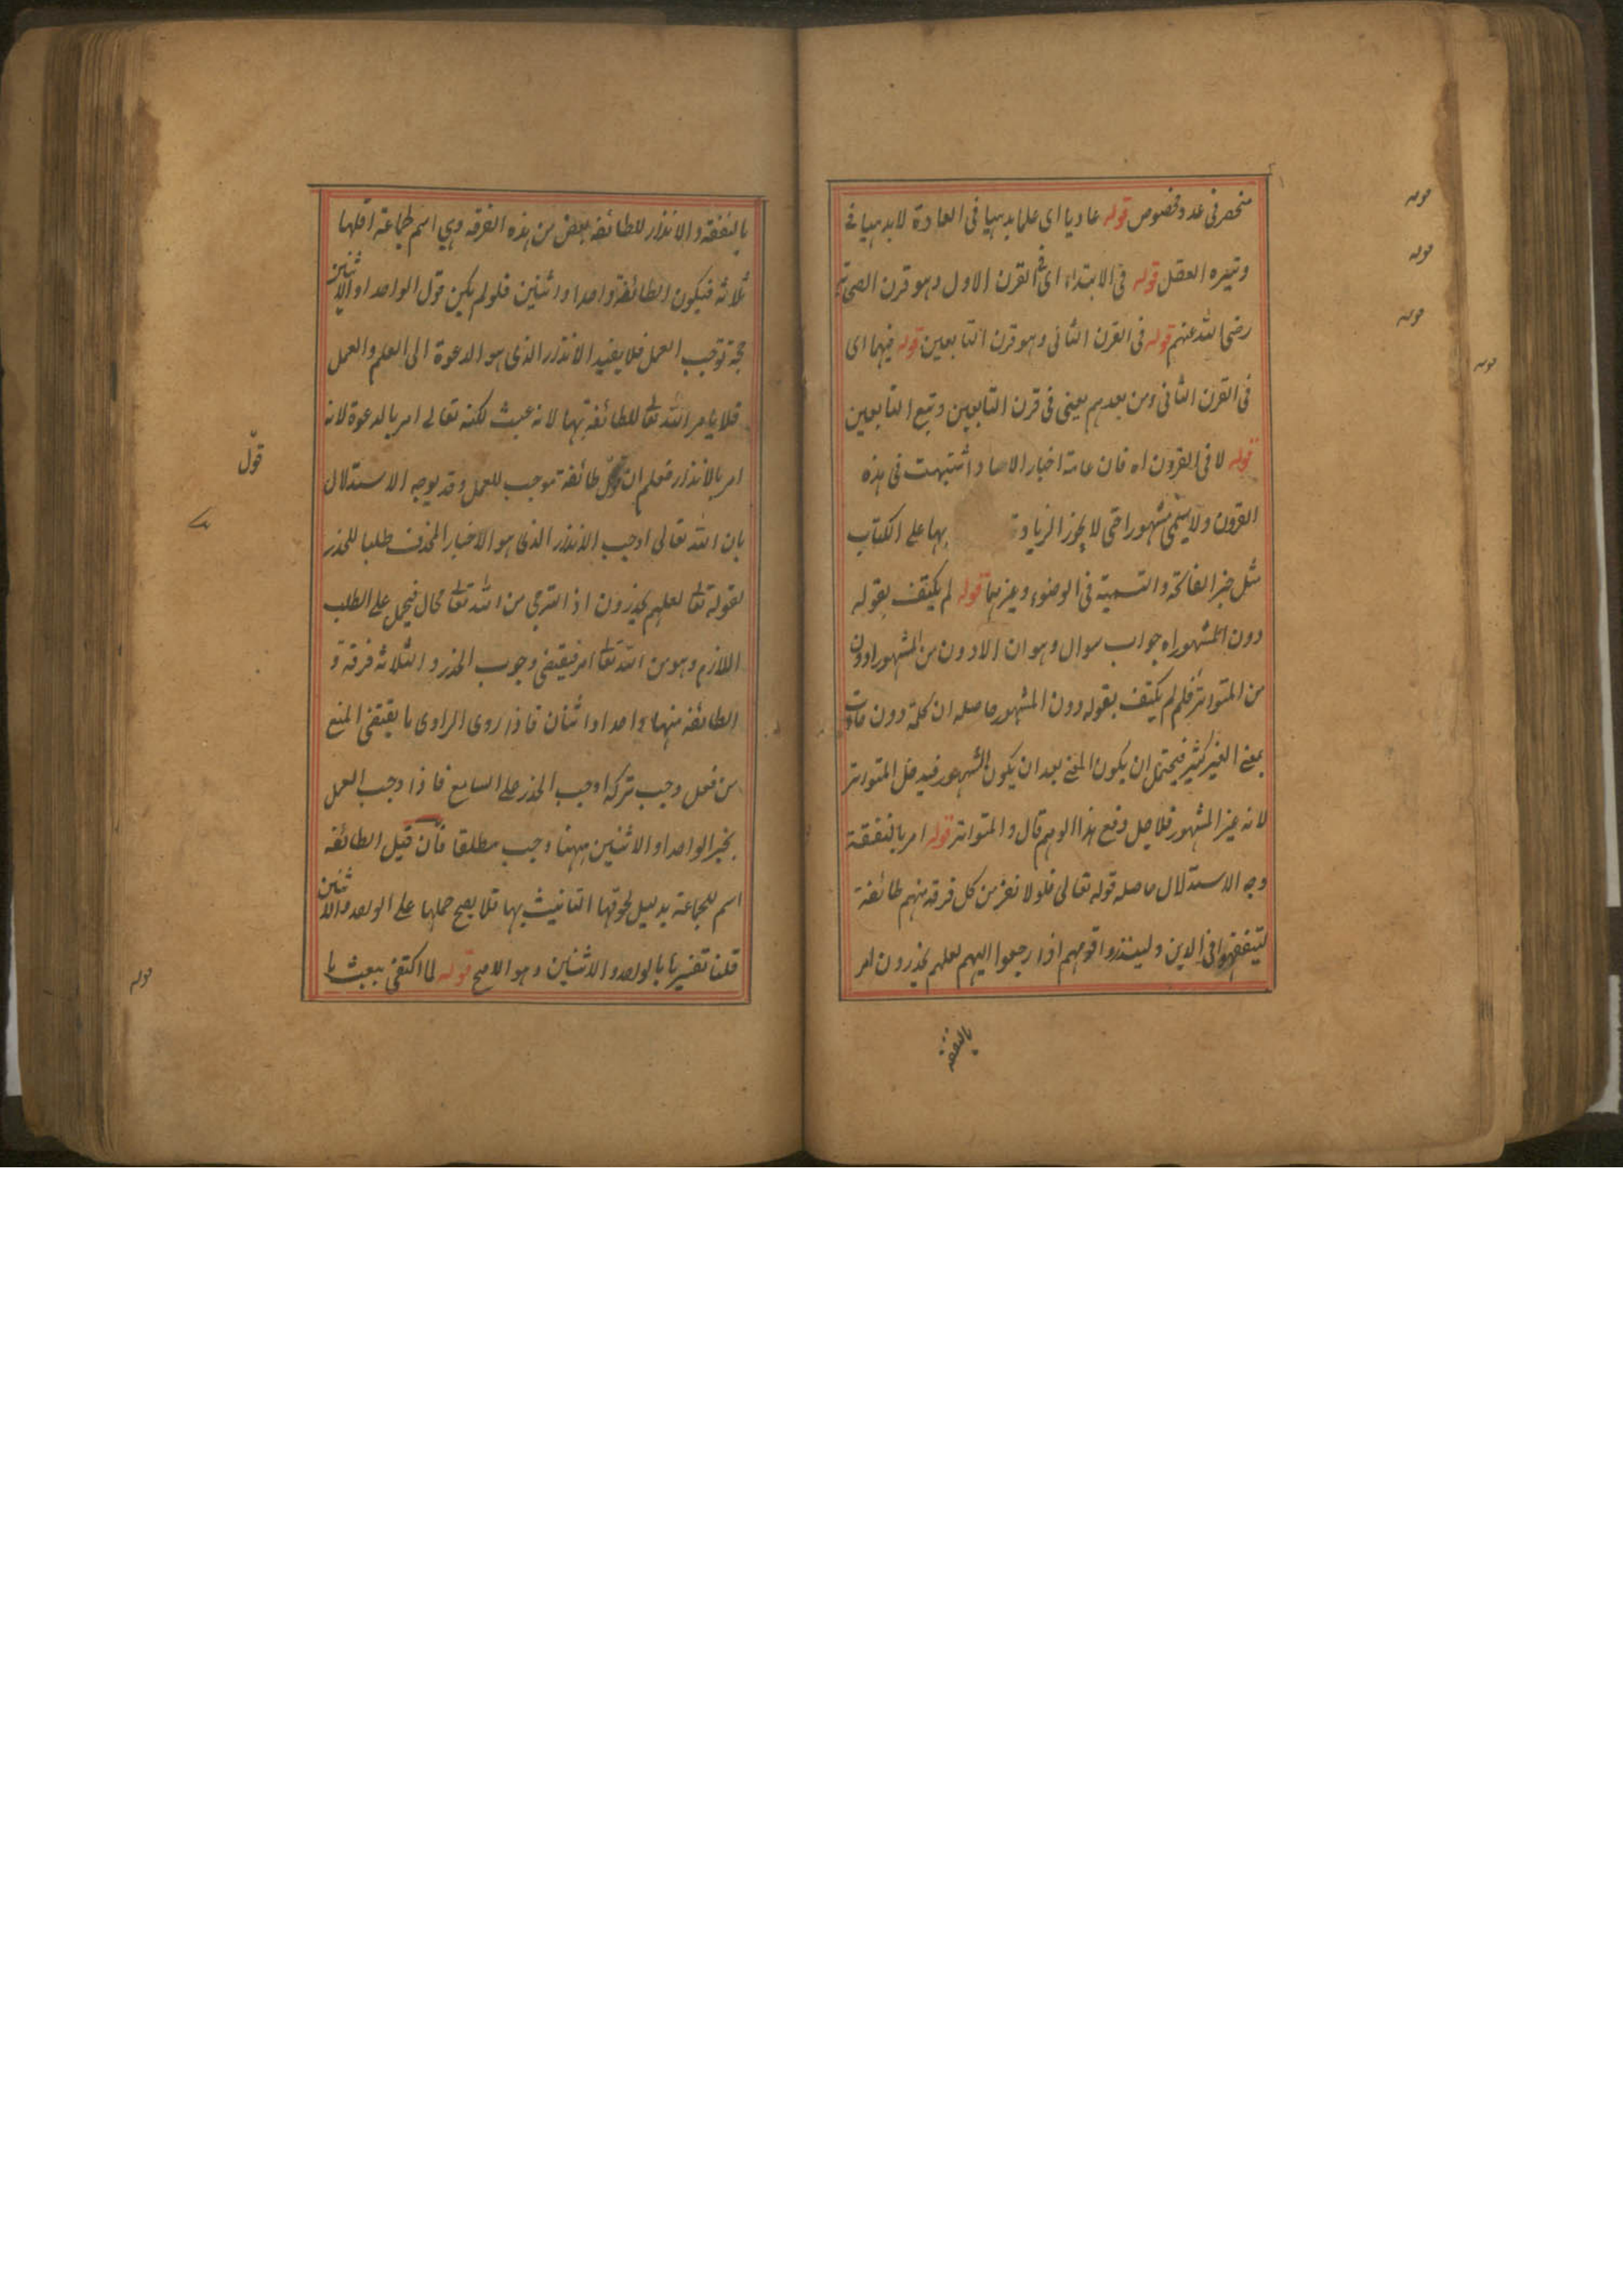 منحصر فى عدد مخصوص قوله عاديا اى علما بديهيا فى العادة لا بديهيا فى
وتيره العقل قوله فى الابتداء اى فى القرن الاول وهو قرن الصحابة
رضى الله عنهم قوله فى القرن الثانى وهو قرن التابعين قوله فيهما اى
فى القرن الثانى ومن بعدهم يعنى فى قرن التابعين وتبع التابعين
قوله لا فى القرون اه فان عامة اخبار الاحاد اشتهت فى هذه
القرون ولا يسمى مشهورا حتى لا يجوز الزيادة بها على الكتاب
مثل خبر الفاتحة والتسمية فى الوضوء وغيرهما قوله لم يكتف بقوله
دون المشهور اه جواب سوال وهو ان الادون من المشهور ادون
من المتواتر فلم لم يكتف بقوله دون المشهور حاصله ان كلمة دون
بمعنى الغير كثير فيحتمل ان يكون المعنى بعد ان يكون المشهور فيدخل المتواتر
لانه غير المشهور فلاجل دفع هذا الوهم قال والمتواتر قوله امر بالتفقة
وجه الاستدلال حاصله قوله تعالى فلولا نفر من كل فرقه منهم طائفة
ليتفقهوا فى الدين ولينذروا قومهم اذا رجعوا اليهم لعلهم يحذرون امر
بالتفقه
بالتفقه والانذار للطائفه بعض من هذه الفرقه وهي اسم لجماعة اقلها
ثلاثه فيكون الطائفة واحدا او اثنين فلو لم يكن قول الواحد او الاثنين
حجة توجب العمل فلا يفيد الانذار الذى هو الدعوة الى العلم والعمل
فلا يامر الله تعا للطائفة بها لانه عبث لكنه تعالى امر بالدعوة لانه
امر بالانذار فعلم ان قول طائفة موجب للعمل وقد يوجه الاستدلال
قول
بان الله تعالى اوجب الانذار الذى هو الاخبار المخوف طلبا للحذر
لقوله تعا لعلهم يحذرون اذ الترجى من الله تعا محال فيحمل على الطلب
اللازم وهو من الله تعا امر فيقتضى وجوب الحذر والثلاثه فرقة و
الطائفه منها واحد او اثنان فاذا روى الراوى ما يقتضى المنع
من فعل وجب تركه اوجب الحذر على السامع فاذا وجب العمل
بخبر الواحد او الاثنين ههنا وجب مطلقا فان قيل الطائفه
اسم للجماعة بدليل لحوقها التانيث بها فلا يصح حملها على الواحد والاثنين
قلنا تفسيرها بالواحد والاثنين وهو الاصح قوله لما اكتفى ببعث
قوله